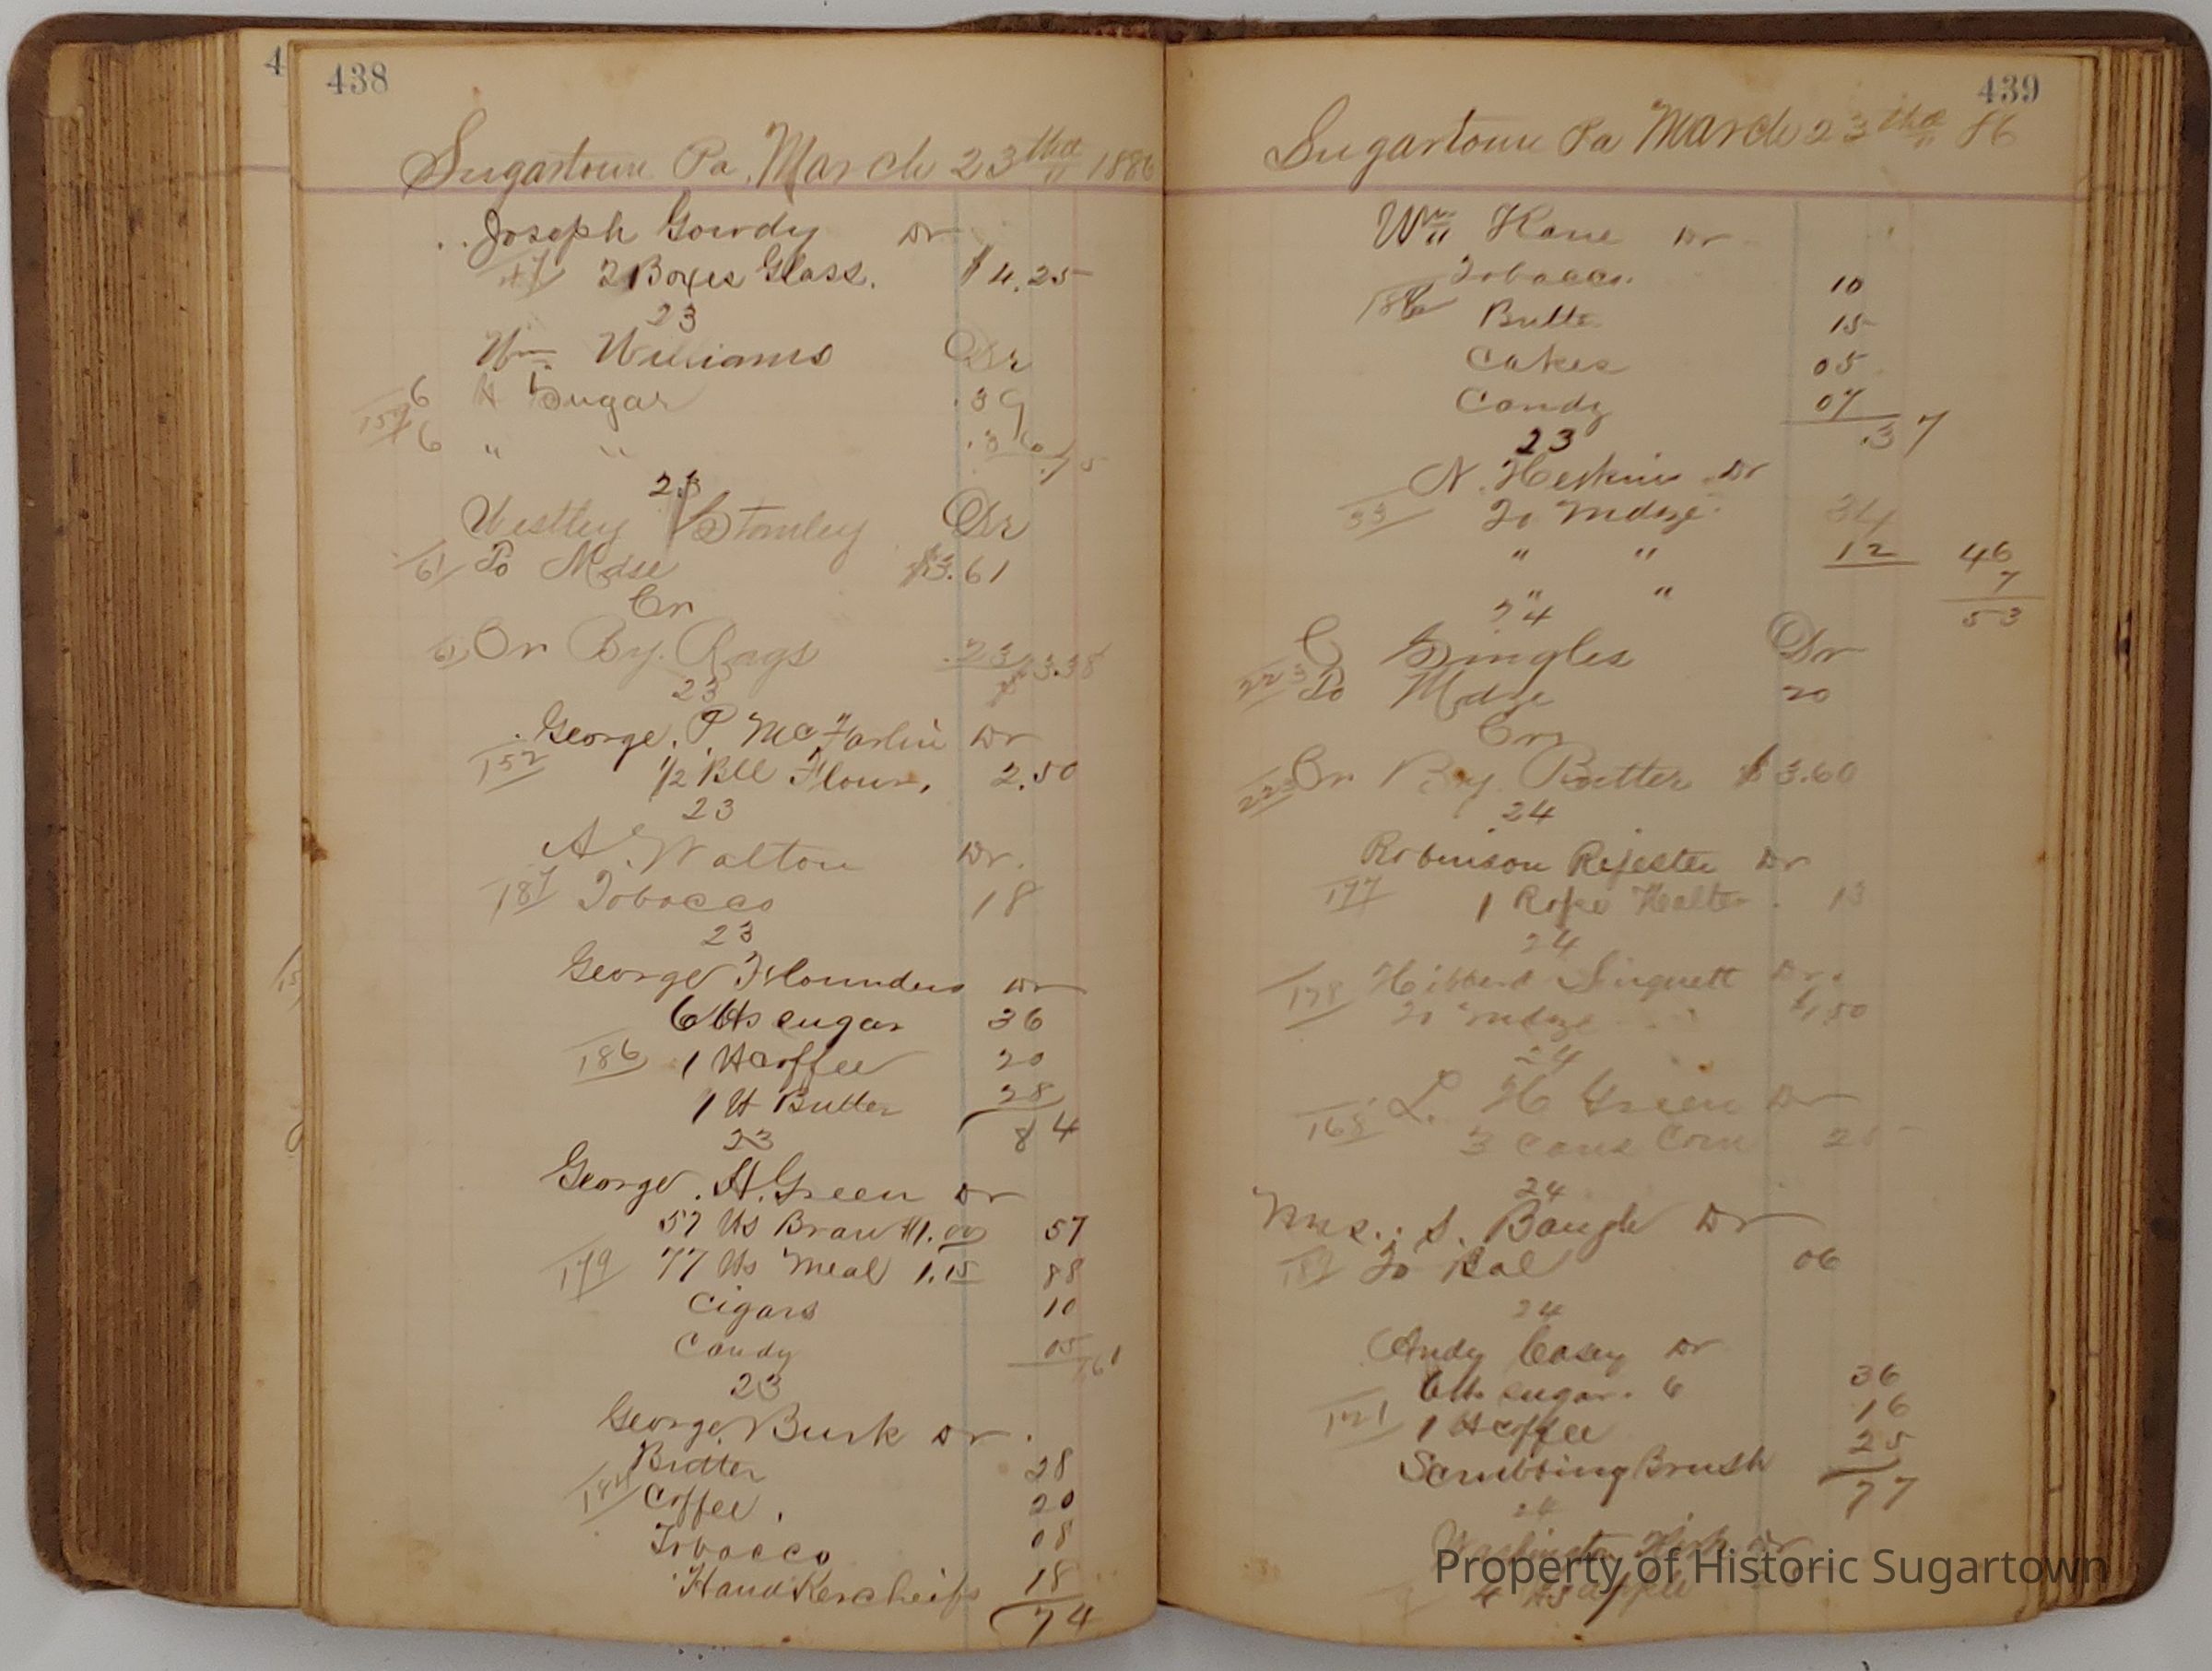 4
438
Sugartown Pa, March 23th 1886
Joseph Gowdy Dr
47 2 Boxes Glass. $4.25
23
Wm Williams Dr
6 lb Sugar .39
6 " " .36 .75
23
Westley Stanley Dr
61 To Mdse $3.61
Cr
61 Cr By. Rags .23 $3.38
23
George. P. McFarlin Dr
152 1/2 Bll Flour, 2.50
23
A. Walton Dr.
187 Tobacco 18
23
George Flounders Dr
6 lbs sugar 36
186 1 lb Coffee 20
1 lb Butter 28
84
23
George. H. Green Dr
57 lbs Bran $1.00 57
179 77 lbs Meal 1.15 88
Cigars 10
Candy 05
1.61
23
George Burk Dr.
Butter 28
184 Coffee, 20
Tobacco 08
HandKercheifs 18
74
439
Sugartown Pa March 23th 86
Wm Kane Dr
Tobacco. 10
186 Butte 15
Cakes 05
Candy 07
.37
23
N. Heskins Dr
33 To Mdze. 34
" " 12 46
" " 7
53
24
C Dingles Dr
223 To Mdze 20
Cr
223 Cr By. Butter $3.60
24
Robinson Rejester Dr
177 1 Rope Healter. 13
24
178 Hibberd Dr.
To mdze 1,50
24
168 L. H Green Dr
3 Cans Corn 25
24
Mrs. S. Baugh Dr
187 To Bal 06
24
Andy Casey Dr
6 lbs sugar. 6 36
121 1 lb Coffee 16
Scrubbing Brush 25
77
24
Washington Dr
4 lbs apple
Property of Historic Sugartown